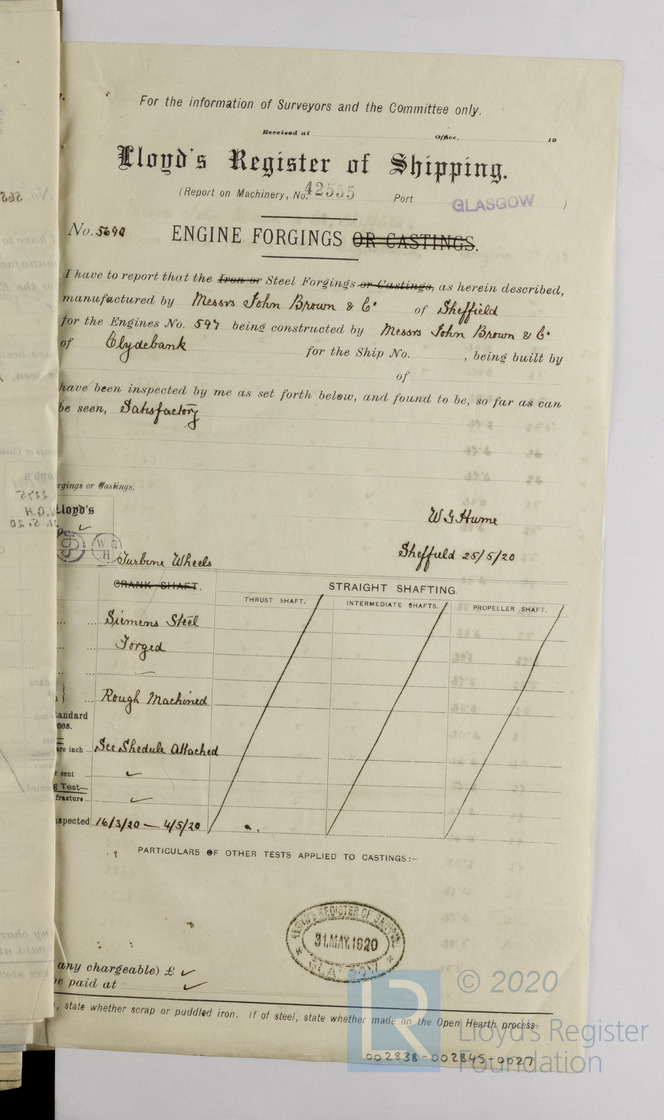 For the information of Surveyors and the Committee only.
Received at Office, 19
Lloyd's Register of Shipping.
(Report on Machinery, No. 42555 Port GLASGOW )
No. 5690
ENGINE FORGINGS OR CASTINGS.
I have to report that the Iron or Steel Forgings or Castings, as herein described,
manufactured by Messrs John Brown & Co of Sheffield
for the Engines No. 597 being constructed by Messrs John Brown & Co
of Clydebank for the Ship No. , being built by
of
have been inspected by me as set forth below, and found to be, so far as can
be seen, Satisfactory
rgings or Castings.
Lloyd's
W G Hume
Sheffield 25/5/20
W.G H
Turbine Wheels
CRANK SHAFT. STRAIGHT SHAFTING.
THRUST SHAFT. INTERMEDIATE SHAFTS. PROPELLER SHAFT.
Siemens Steel
Forged
Rough Machined
tandard
ces.
are inch See Shedule Attached
r cent ✓
g Test—
fracture ✓
nspected 16/3/20 — 4/5/20
PARTICULARS OF OTHER TESTS APPLIED TO CASTINGS:—
LLOYD'S REGISTER OF SHIPPING
31.MAY.1920
GLASGOW
any chargeable) £ ✓
be paid at ✓
, state whether scrap or puddled iron. If of steel, state whether made on the Open Hearth process.
© 2020
Lloyd's Register
Foundation
002838-002845-0027